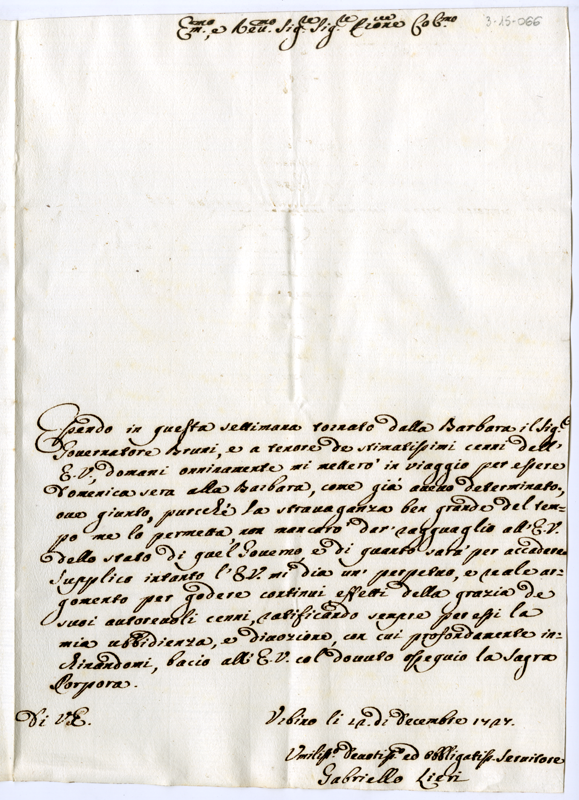 3-15-066
Em.mo, e Reu.mo Sig.re Sig.re Pr̃one Col.mo
Essendo in questa settimana tornato dalla Barbara il Sig.r
Gouernatore Bruni, e a tenore de stimatissimi cenni dell'
E.V., domani onninamente mi mettero' in viaggio per essere
Domenica sera alla Barbara, come già aueuo determinato,
oue giunto, purchè la strauaganza ben grande del tem-
po me lo permetta, non mancarò dar' ragguaglio all'E.V.
dello stato di quel Gouerno, e di quanto sara' per accadere.
Supplico intanto l'E.V. mi dia un' perpetuo, e reale ar-
gomento per godere continui effetti della grazia de
suoi autoreuoli cenni, ratificando sempre per essi la
mia ubbidienza, e diuozione, con cui profondamente in-
chinandomi, bacio all'E.V. col douuto ossequio la Sagra
Porpora.
Di V.E.
Vrbino li di Decembre 1727.
Vmiliss.o Deuotiss.o ed obbligatiss. Seruitore
Gabriello Lieri